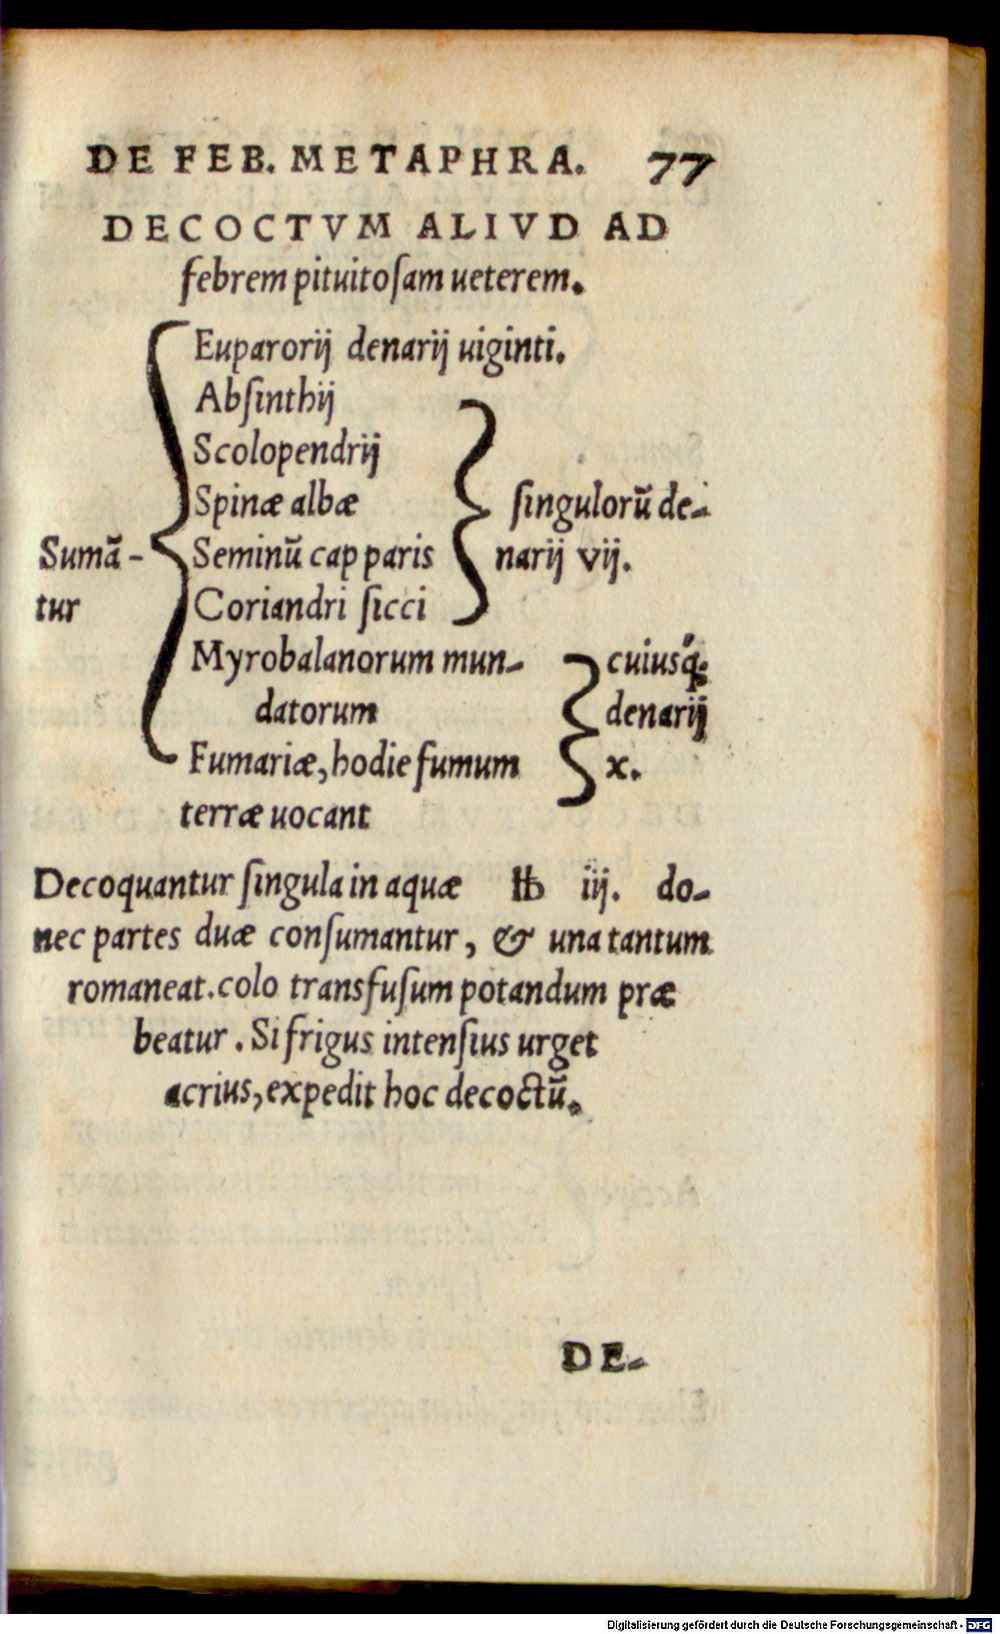 DE FEB. METAPHRA. 77
DECOCTVM ALIVD AD
febrem pituitoſam ueterem.
Euparorij denarij uiginti.
Abſinthij
Scolopendrij
Spinæ albæ ſingulorũ de-
Sumã- Seminũ capparis narij vij.
tur Coriandri ſicci
Myrobalanorum mun- cuiusq́;
datorum denarij
Fumariæ, hodie fumum x.
terræ uocant
Decoquantur ſingula in aquæ ℔ iij. do-
nec partes duæ conſumantur, & una tantum
romaneat. colo transfuſum potandum præ
beatur. Si frigus intenſius urget
acrius, expedit hoc decoctũ.
DE-
Digitalisierung gefördert durch die Deutsche Forschungsgemeinschaft - DFG